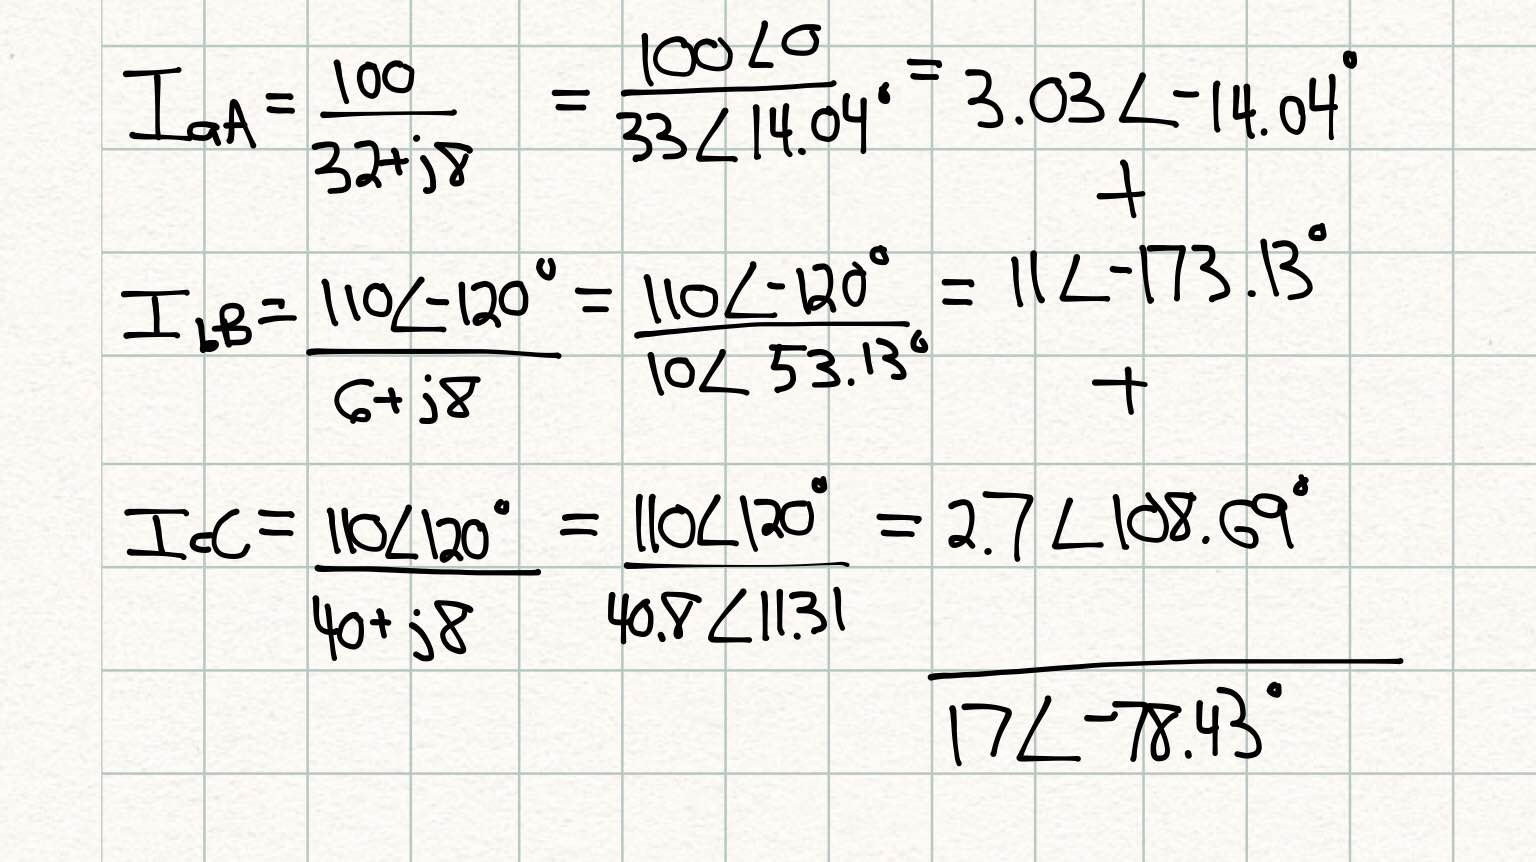 I_aA = 100/(32+j8) = 100∠0/33∠14.04° = 3.03∠-14.04°
+
I_bB = 110∠-120°/(6+j8) = 110∠-120°/10∠53.13° = 11∠-173.13°
+
I_cC = 110∠120°/(40+j8) = 110∠120°/40.8∠11.31 = 2.7∠108.69°
17∠-78.43°